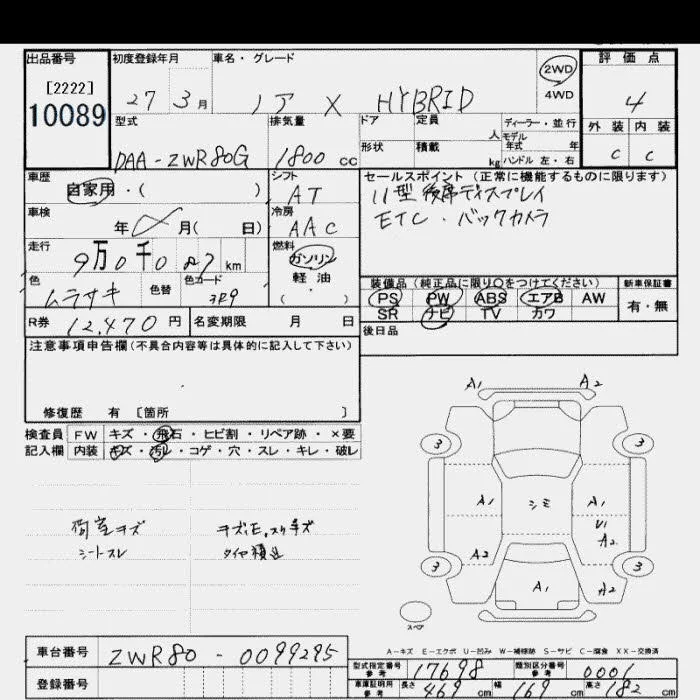 出品番号 初度登録年月 車名・グレード 評価点
[2222]
10089
27 3月 ノア X HYBRID 2WD 4
4WD
型式 排気量 ドア 定員 人 ディーラー・並行 外装 内装
モデル年式 年
DAA-ZWR80G 1800 cc 形状 積載 kg ハンドル 左・右 C C
車歴 シフト セールスポイント (正常に機能するものに限ります)
自家用・( ) AT 11型後席ディスプレイ
車検 冷房 ETC・バックカメラ
年 月( 日) AAC
走行 燃料
9万0千087km ガソリン
軽油
( )
色 色替 色コード 装備品(純正品に限り○をつけてください) 新車保証書
ムラサキ 3R9 PS PW ABS エアB AW 有・無
SR ナビ TV カワ
R券 12,470円 名変期限 月 日 後日品
注意事項申告欄(不具合内容等は具体的に記入して下さい)
修復歴 有 [箇所 ]
検査員 FW キズ・飛石・ヒビ割・リペア跡・×要
記入欄 内装 キズ・汚レ・コゲ・穴・スレ・キレ・破レ
A1 A2
3 3
A1 シミ A1
U1
A2 A2
3 3
A1 A2
スペア
荷室キズ
シートスレ
タイヤ積込
A-キズ E-エクボ U-凹み W-補修跡 S-サビ C-腐食 XX-交換済
車台番号 ZWR80-0099295
登録番号
型式指定番号 参考 17698 類別区分番号 参考 0001
車庫証明用 参考 長さ 469cm 幅 169cm 高さ 182cm